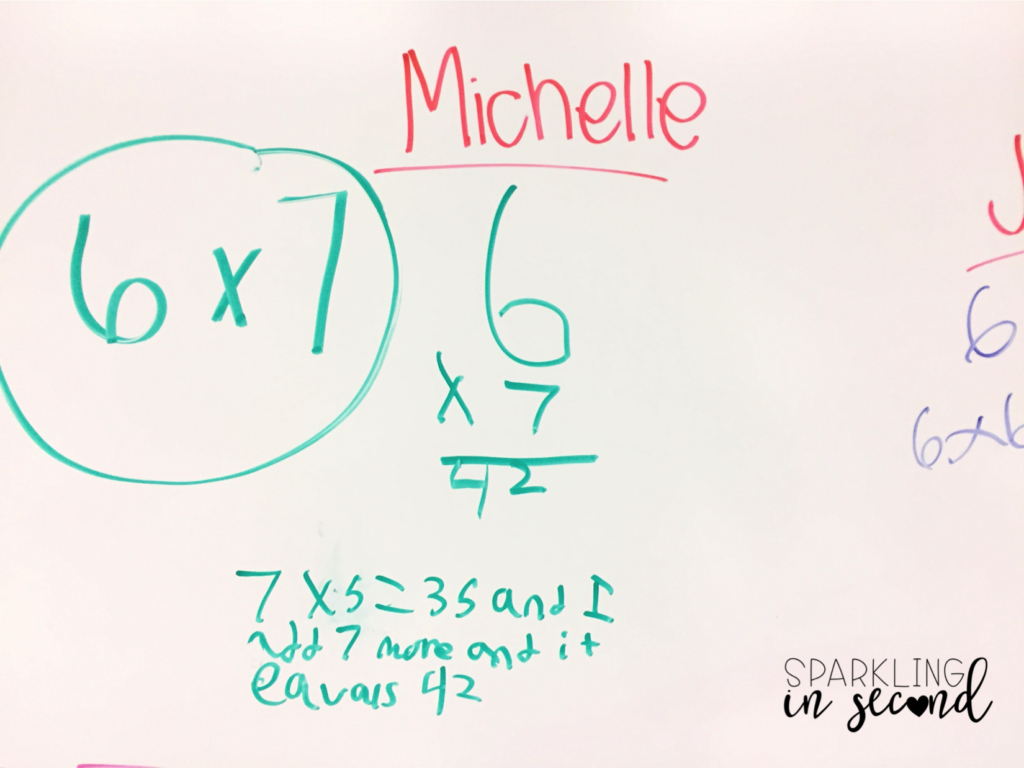 Michelle
6 x 7
6
x 7
42
7 x 5 = 35 and I
add 7 more and it
eavals 42
J
6
6x6
SPARKLING
in second